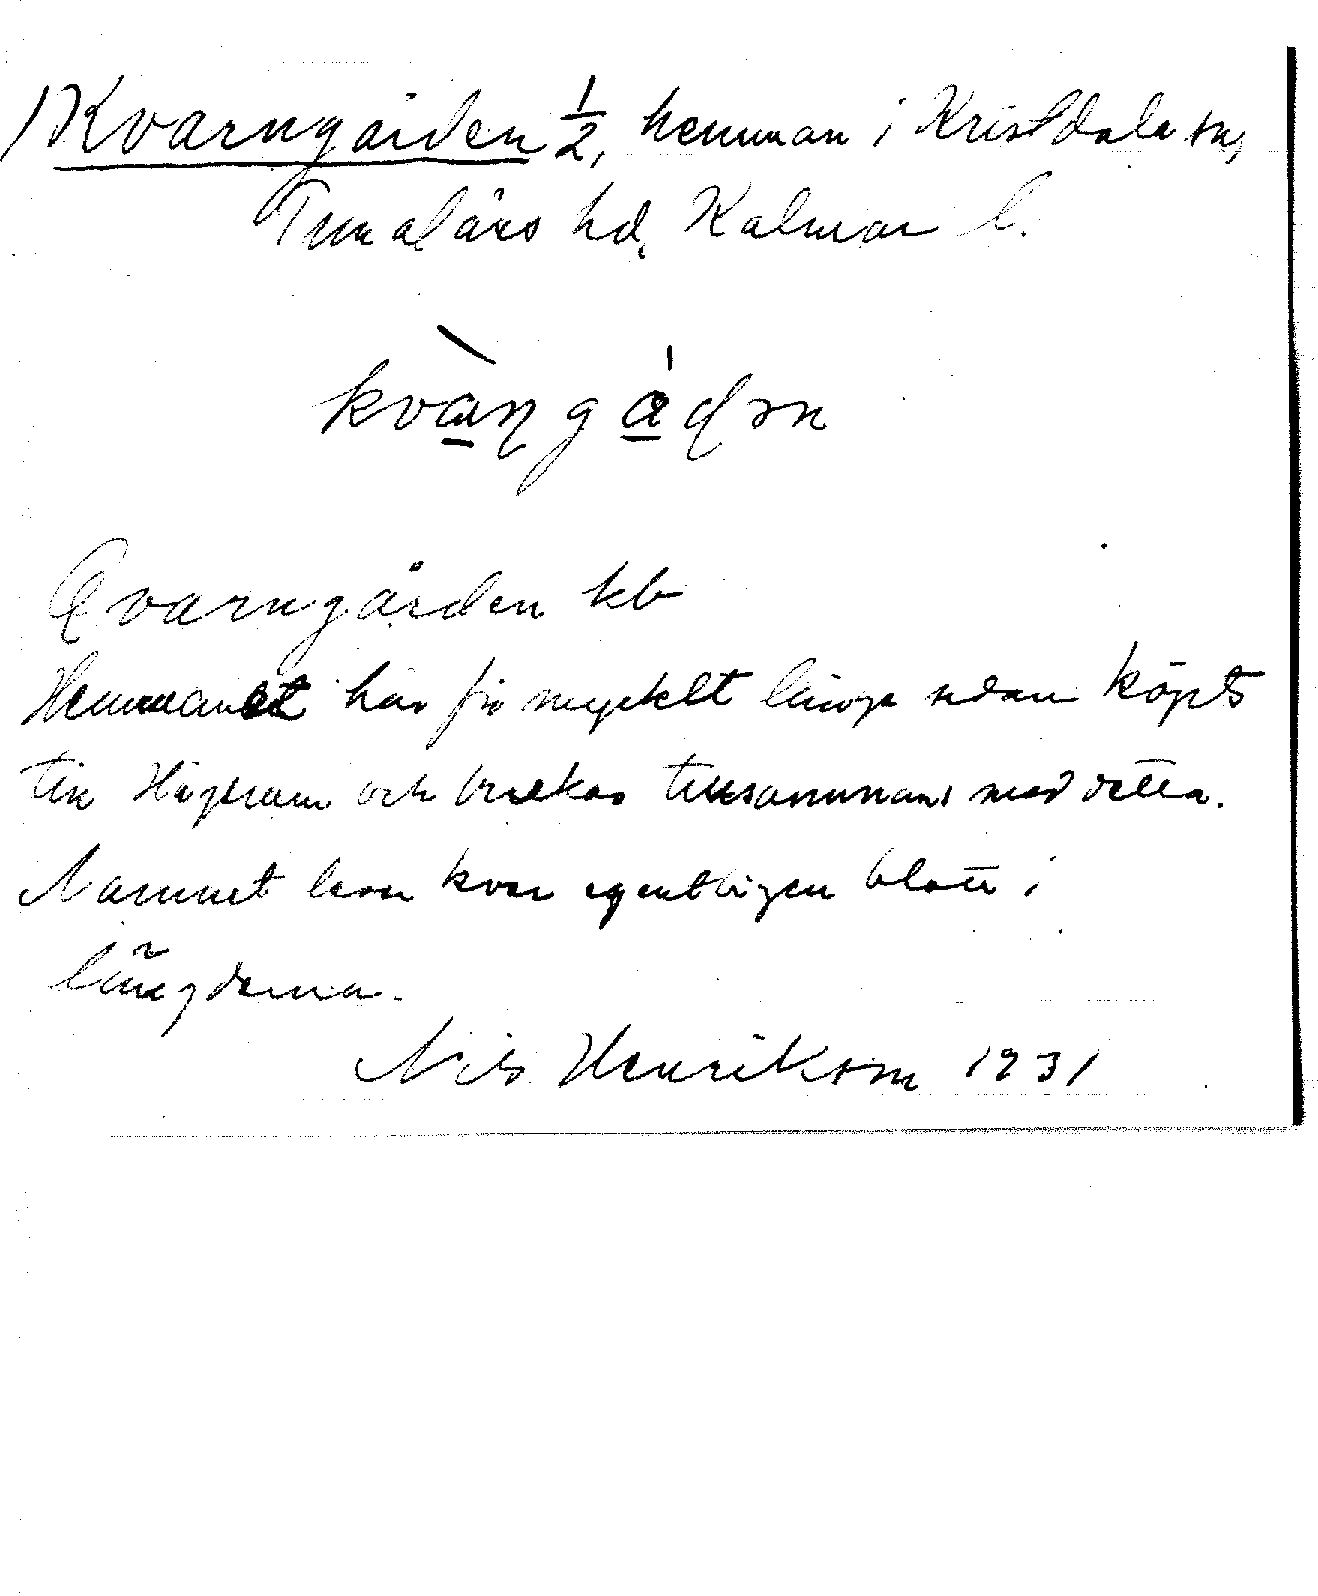 /Kvarngården 1/2, hemman i Kristdala sn,
Tunaläns hd, Kalmar l.
kvàn̥gád̥ən
Qvarngården kb
Hemmanet har för mycket länge sedan köpts
till Högsrum och brukas tillsammans med detta.
Namnet lever kvar egentligen blott i
längderna.
Nils Henrikson 1931